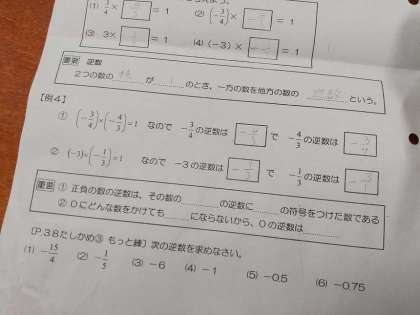 (1) 3/4 × 4/3 = 1 (2) (-3/4) × = 1
(3) 3× = 1 (4) (-3) × = 1
重要 逆数
2つの数の 積 が 1 のとき、一方の数を他方の数の 逆数 という。
【例4】
① (-3/4)×(-4/3)=1 なので -3/4の逆数は -4/3 で -4/3の逆数は -3/4
② (-3)×(-1/3)=1 なので -3の逆数は -1/3 で -1/3の逆数は -3/1
重要 ① 正負の数の逆数は、その数の の逆数に の符号をつけた数である
② 0にどんな数をかけても にならないから、0の逆数は
〔P.38たしかめ③ もっと練〕次の逆数を求めなさい。
(1) -15/4 (2) -1/5 (3) -6 (4) -1 (5) -0.5 (6) -0.75